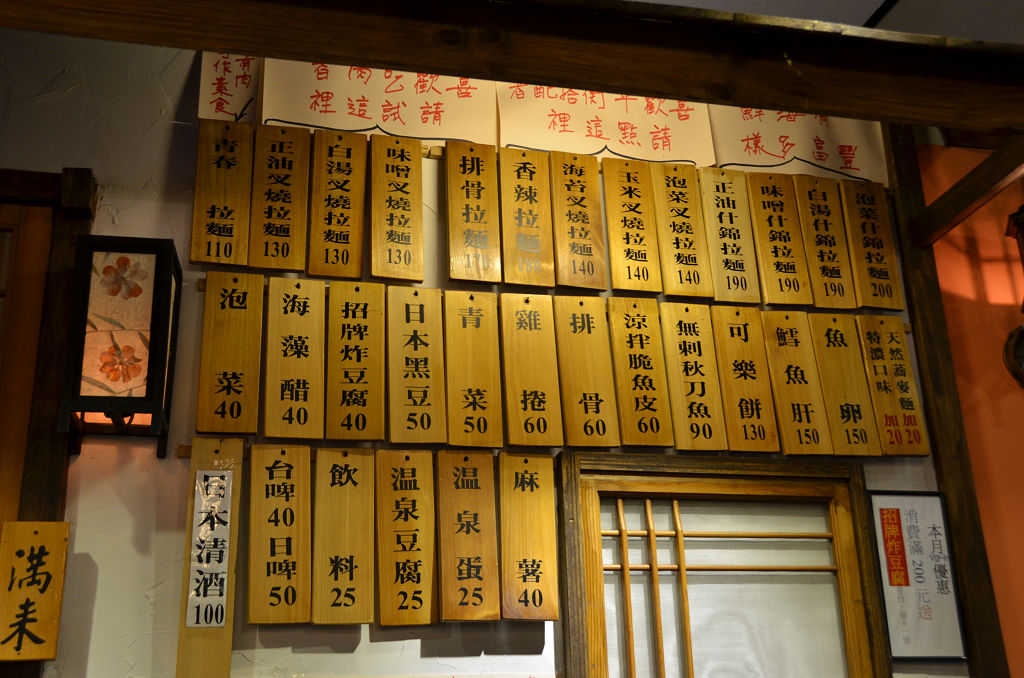 作素食
有肉
喜歡吃肉
請試這裡
喜歡
請點這裡
豐富多樣
青春拉麵110
正油叉燒拉麵130
白湯叉燒拉麵130
味噌叉燒拉麵130
排骨拉麵
香辣拉麵
海苔叉燒拉麵140
玉米叉燒拉麵140
泡菜叉燒拉麵140
正油什錦拉麵190
味噌什錦拉麵190
白湯什錦拉麵190
泡菜什錦拉麵200
泡菜40
海藻醋40
招牌炸豆腐40
日本黑豆50
青菜50
雞捲60
排骨60
涼拌脆魚皮60
無刺秋刀魚90
可樂餅130
鱈魚肝150
魚卵150
天然蕎麥麵加20
特濃口味加20
日本清酒100
台啤40日啤50
飲料25
温泉豆腐25
温泉蛋25
麻薯40
滿来
本月優惠
消費滿200元送
招牌炸豆腐